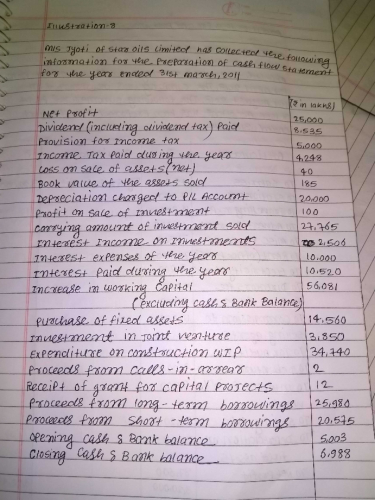 Illustration-8
M/s Jyoti of star oils limited has collected the following
information for the Preparation of cash flow statement
for the year ended 31st march, 2011
(₹ in lakhs)
Net Profit 25,000
Dividend (including dividend tax) Paid 8.535
Provision for Income tax 5,000
Income Tax Paid during the year 4,248
Loss on sale of assets (net) 40
Book value of the assets sold 185
Depreciation charged to P/L Account 20,000
Profit on sale of Investment 100
Carrying amount of investment sold 27.765
Interest Income on Investments 2.506
Interest expenses of the year 10.000
Interest Paid during the year 10.520
Increase in working Capital 56,081
(excluding cash & Bank Balance)
Purchase of fixed assets 14.560
Investment in Joint venture 3,850
Expenditure on construction WIP 34.740
Proceeds from calls-in-arrear 2
Receipt of grant for capital Projects 12
Proceeds from long-term borrowings 25,980
Proceeds from Short-term borrowings 20.575
Opening cash & Bank balance 5,003
Closing Cash & Bank balance 6,988